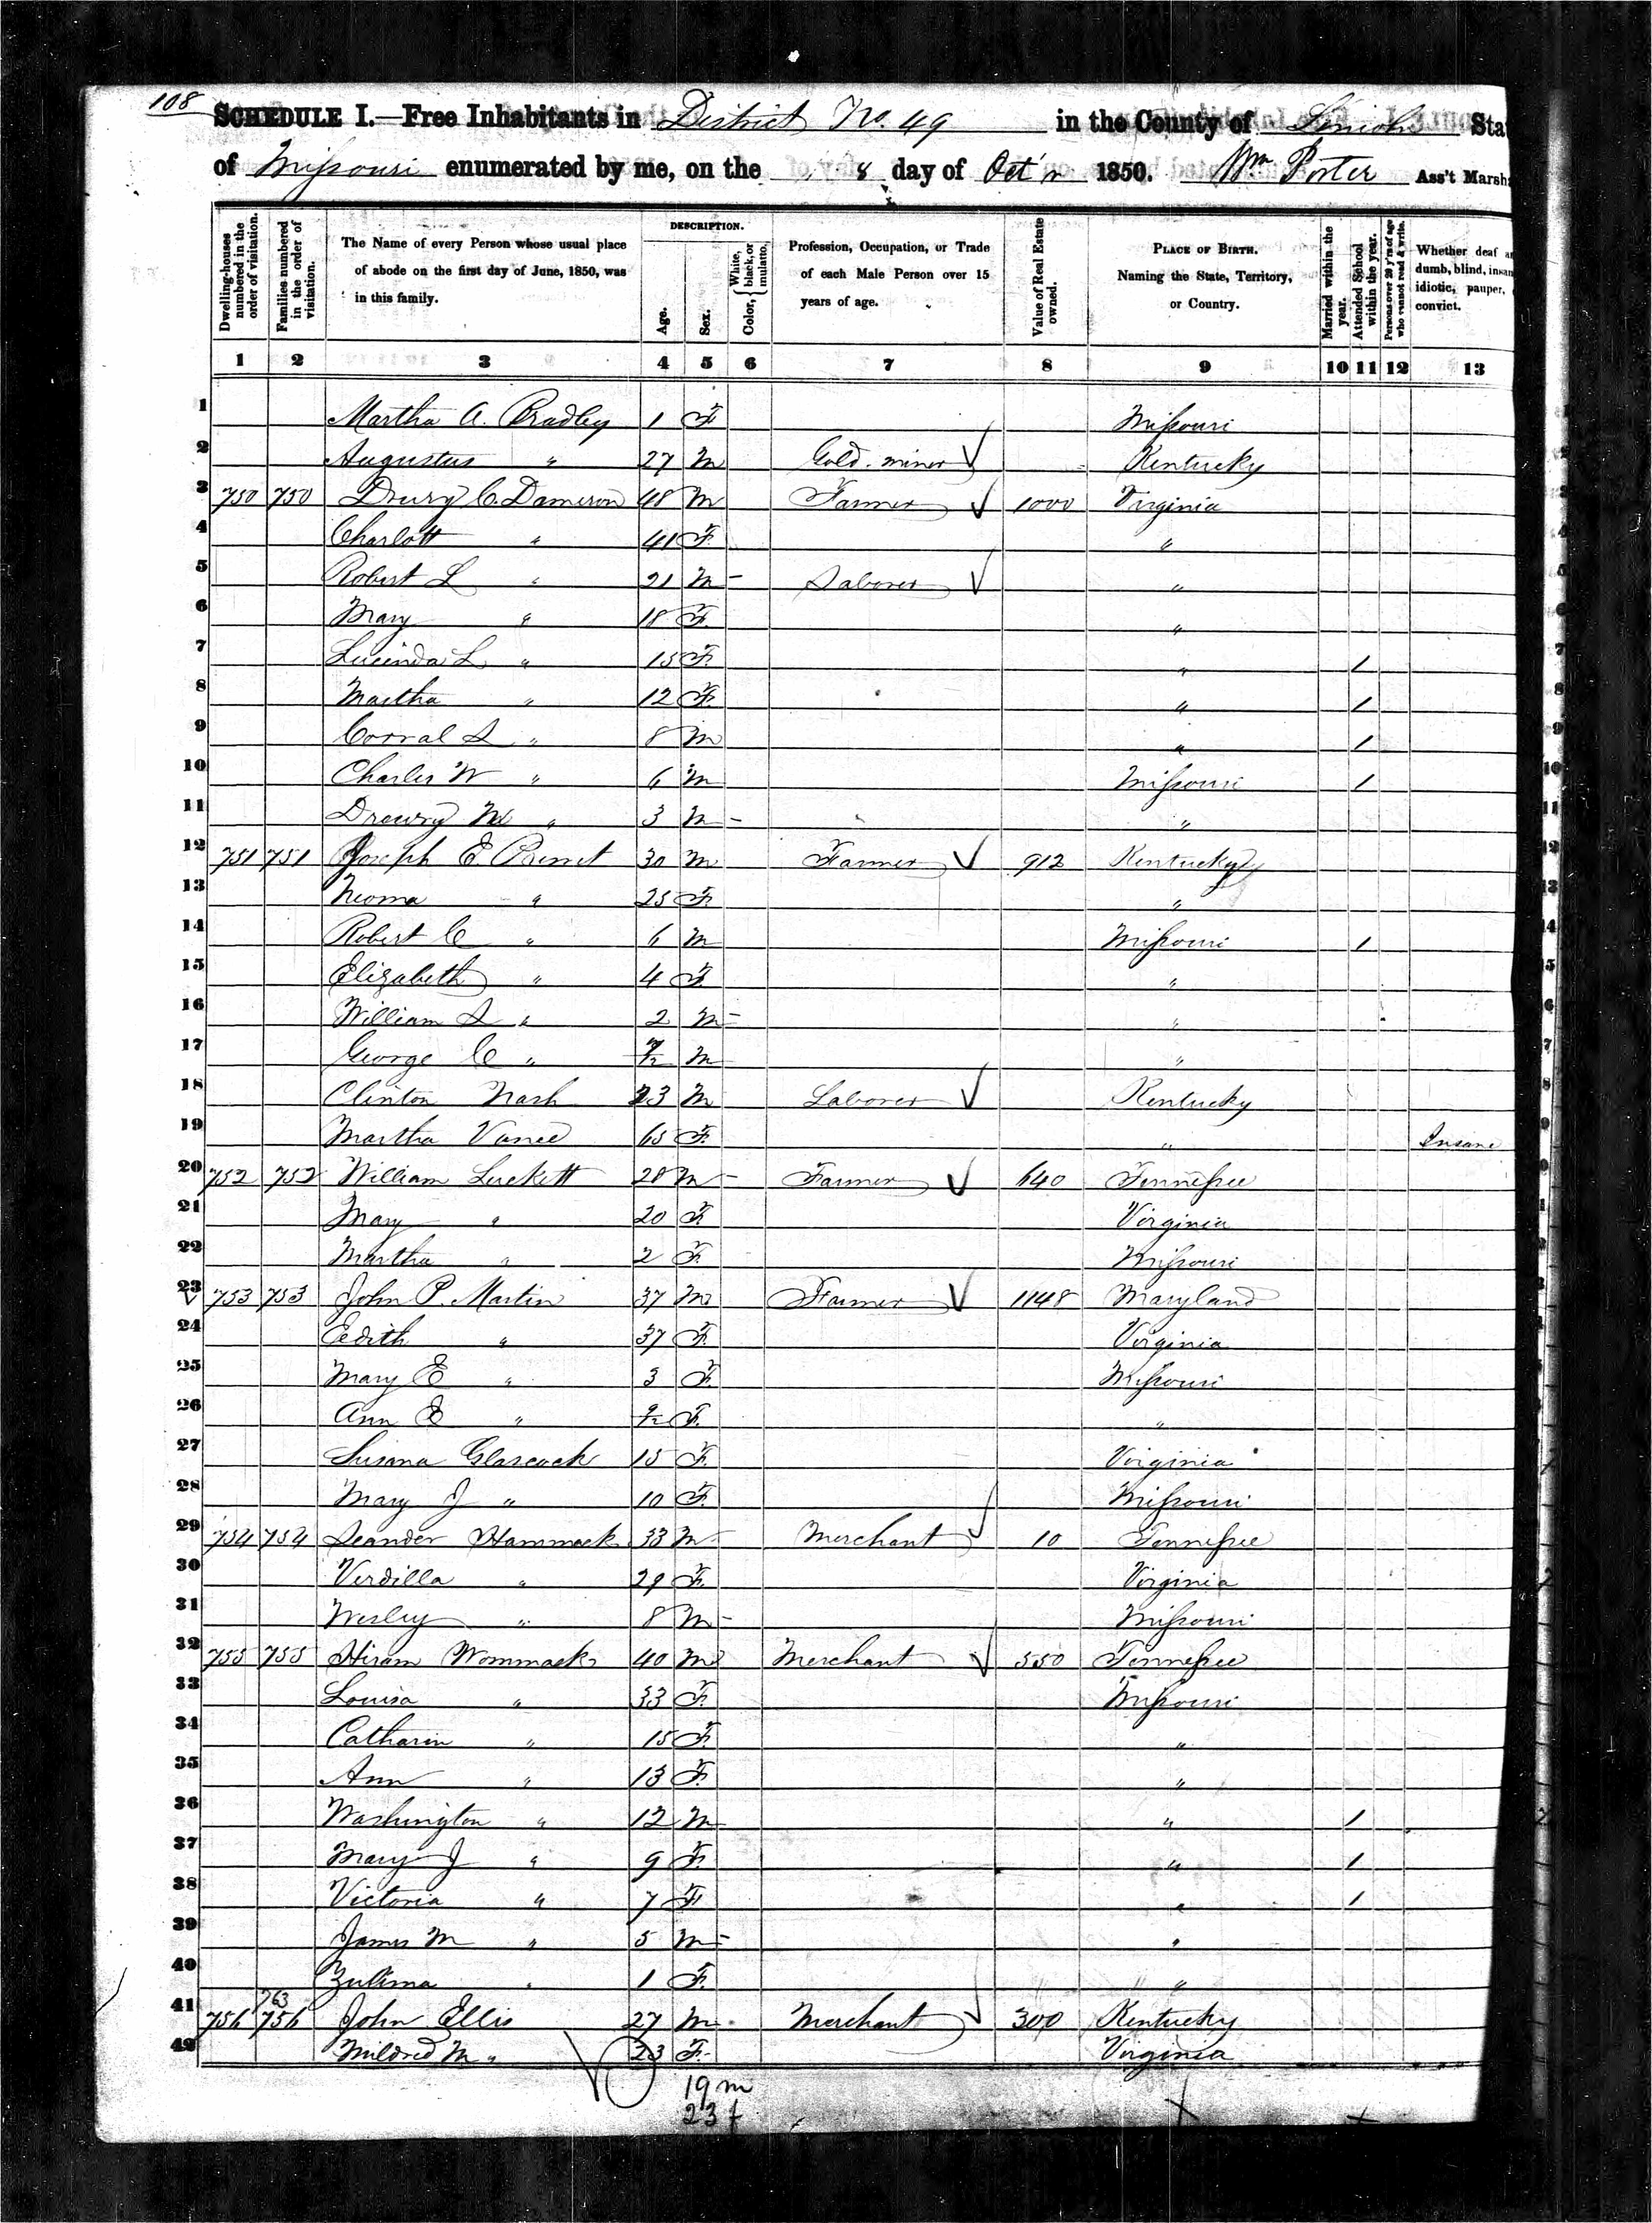 108
SCHEDULE I.—Free Inhabitants in District No. 49 in the County of Lincoln Sta
of Missouri enumerated by me, on the 8 day of Oct'r 1850. Wm Porter Ass't Marsh
Dwelling-houses numbered in the order of visitation.
Families numbered in the order of visitation.
The Name of every Person whose usual place of abode on the first day of June, 1850, was in this family.
DESCRIPTION.
Age.
Sex.
Color, { White, black, or mulatto.
Profession, Occupation, or Trade of each Male Person over 15 years of age.
Value of Real Estate owned.
PLACE OF BIRTH. Naming the State, Territory, or Country.
Married within the year.
Attended School within the year.
Persons over 20 y'rs of age who cannot read & write.
Whether deaf a dumb, blind, insan idiotic, pauper, convict.
1 2 3 4 5 6 7 8 9 10 11 12 13
1 Martha A. Bradley 1 F Missouri
2 Augustus " 27 M Gold miner Kentucky
3 750 750 Drury C. Dameron 48 M Farmer 1000 Virginia
4 Charlott " 41 F "
5 Robert L " 21 M Laborer "
6 Mary " 18 F "
7 Lucinda L " 15 F " 1
8 Martha " 12 F " 1
9 Corral L " 8 M " 1
10 Charles W " 6 M Missouri 1
11 Drewry M " 3 M "
12 751 751 Joseph E 30 M Farmer 912 Kentucky
13 Neoma " 25 F "
14 Robert C " 6 M Missouri 1
15 Elizabeth " 4 F "
16 William L " 2 M "
17 George C " M "
18 Clinton Nash 23 M Laborer Kentucky
19 Martha Vance 65 F " Insane
20 752 752 William Luckett 28 M Farmer 640 Tennessee
21 Mary " 20 F Virginia
22 Martha " 2 F Missouri
23 753 753 John P. Martin 37 M Farmer 1148 Maryland
24 Edith " 37 F Virginia
25 Mary E " 3 F Missouri
26 Ann E " F "
27 Susana Glascock 15 F Virginia
28 Mary J " 10 F Missouri
29 754 754 Leander Hammack 33 M Merchant 10 Tennessee
30 Verdilla " 29 F Virginia
31 Wesley " 8 M Missouri
32 755 755 Hiram Wommack 40 M Merchant 550 Tennessee
33 Louisa " 33 F Missouri
34 Catharin " 15 F "
35 Ann " 13 F "
36 Washington " 12 M " 1
37 Mary J " 9 F " 1
38 Victoria " 7 F " 1
39 James M " 5 M "
40 Zulima " 1 F "
763
41 756 756 John Ellis 27 M Merchant 300 Kentucky
42 Mildred M " 23 F Virginia
19 m
23 f